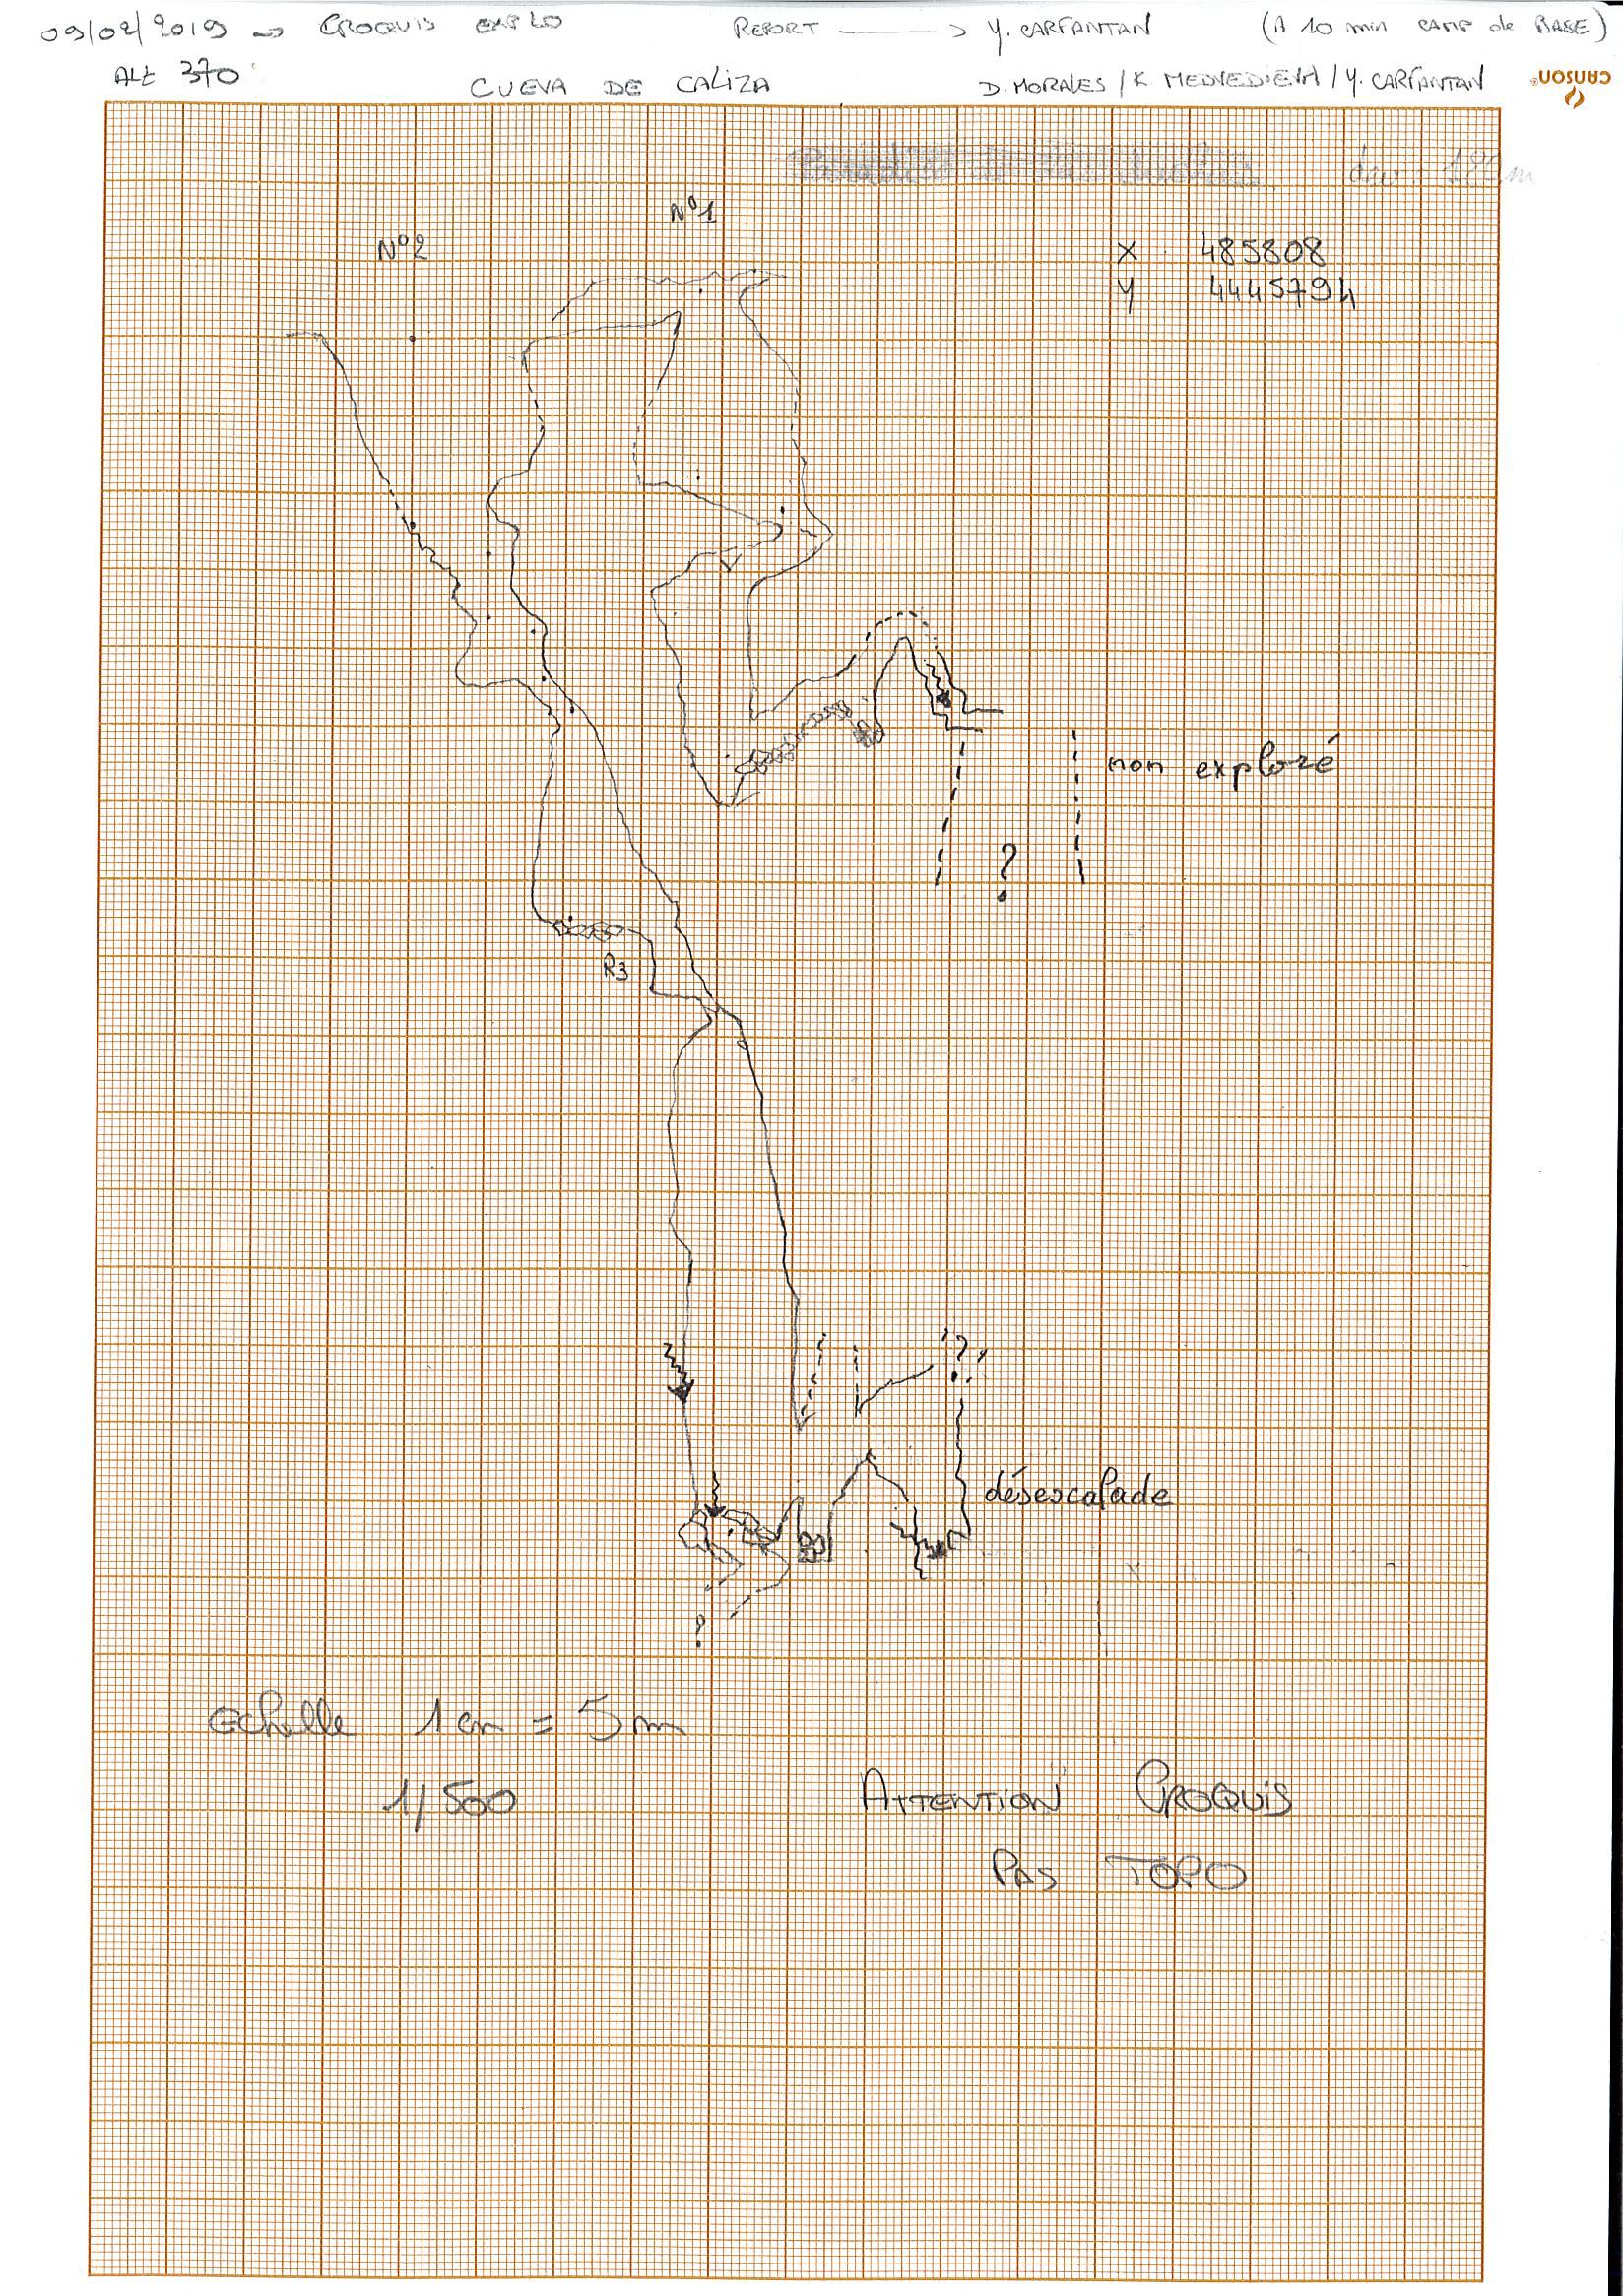 09/02/2019 → CROQUIS EXPLO REPORT → Y. CARFANTAN (A 10 min CAMP de BASE)
ALt 370 CUEVA DE CALIZA D. MORALES / K. MEDVEDIEVA / Y. CARFANTAN
CANSON®
N°1
N°2
X 485808
Y 4445794
non exploré
?
R3
?
désescalade
?
echelle 1 cm = 5 m
1/500
ATTENTION CROQUIS
PAS TOPO